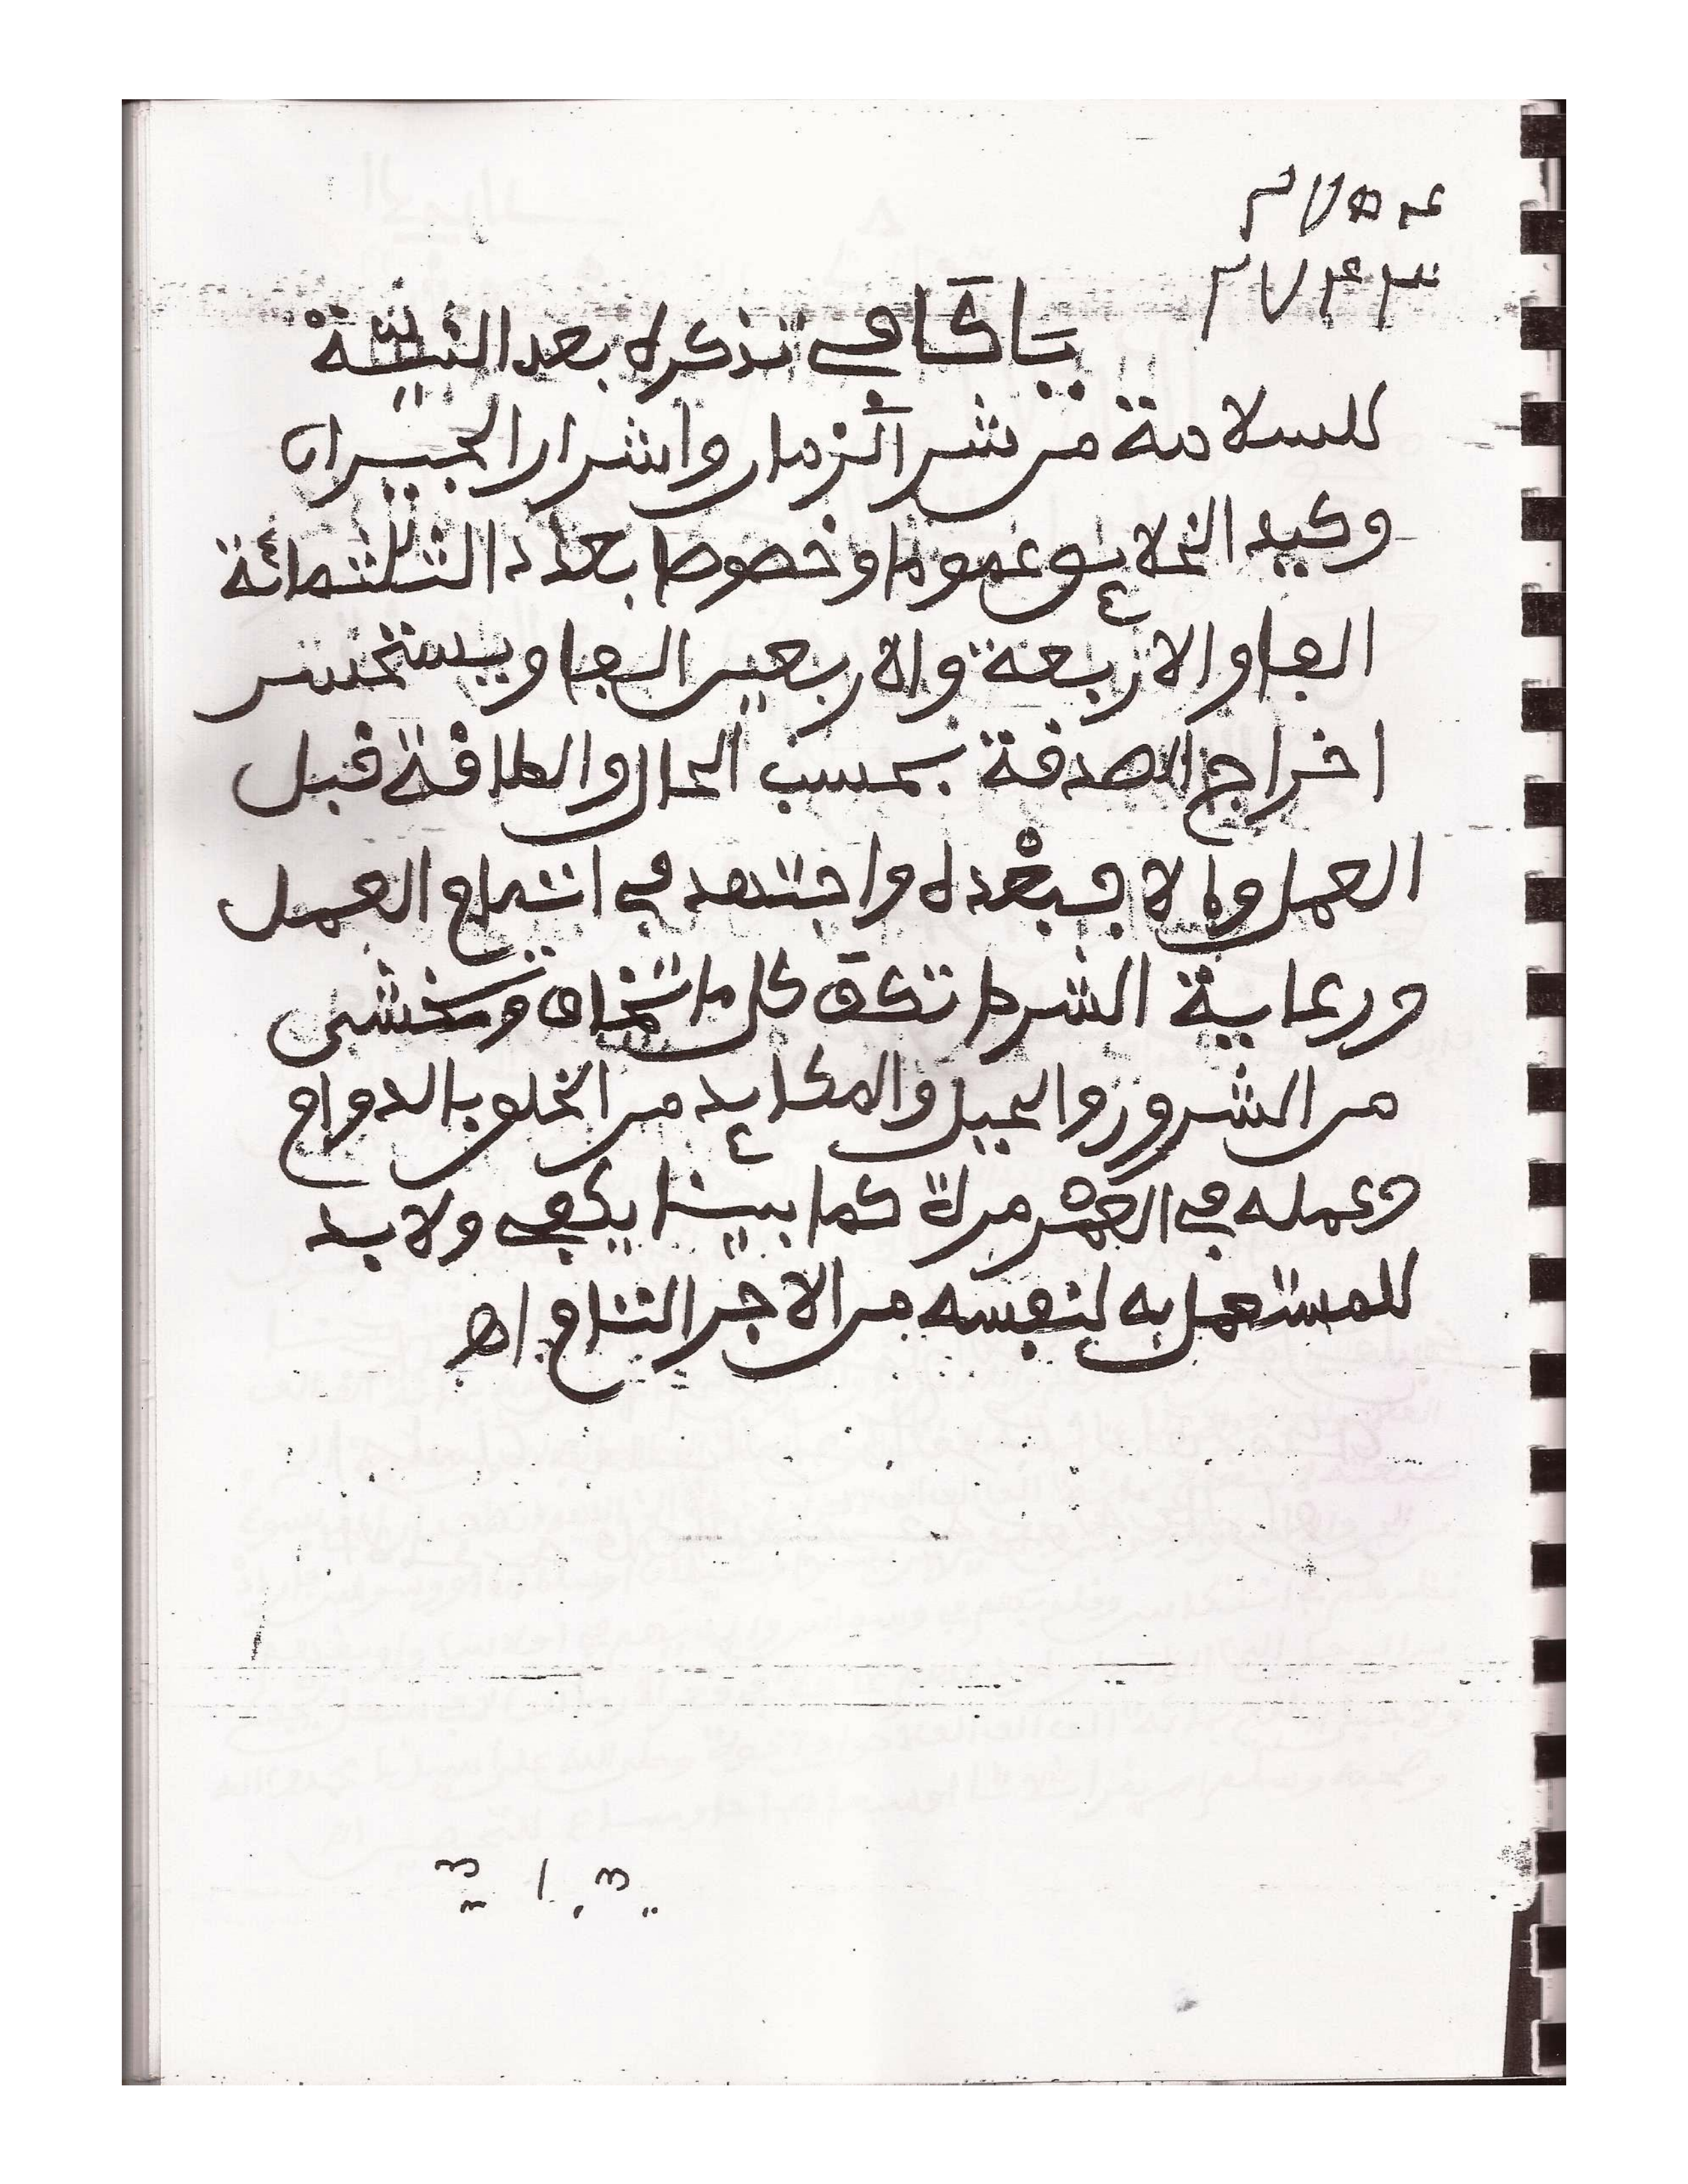 يا كافي تذكره بعد النية
للسلامة من شر الزمان واشرار الجيران
وكيد الخلائق عموما وخصوصا بعدد الثلثمائة
الفا والاربعة والاربعين الفا ويستحسن
اخراج الصدقة بحسب الحال والطاقة قبل
العمل والا فبعده واجتهد في اتمام العمل
ورعاية الشرط تكف كل ما تخاف وتخشى
من الشرور والحيل والمكايد من الخلق بالدوام
وعمله في العمر مرة كما بينا يكفي ولا بد
للمستعمل به لنفسه من الاجر التام اه